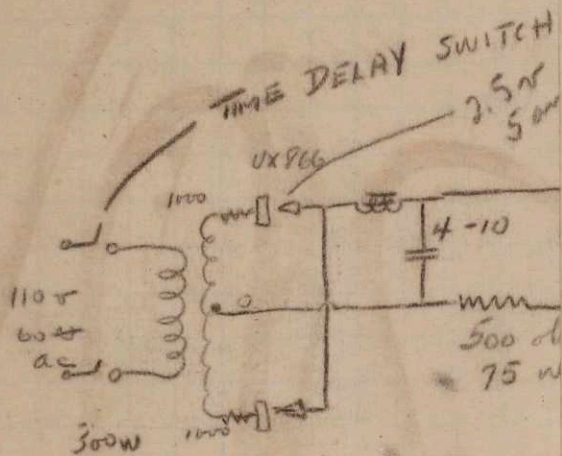 TIME DELAY SWITCH
2.5 v
UX866
1000
0
4-10
110 v
60
ac
500
75 w
300w
1000